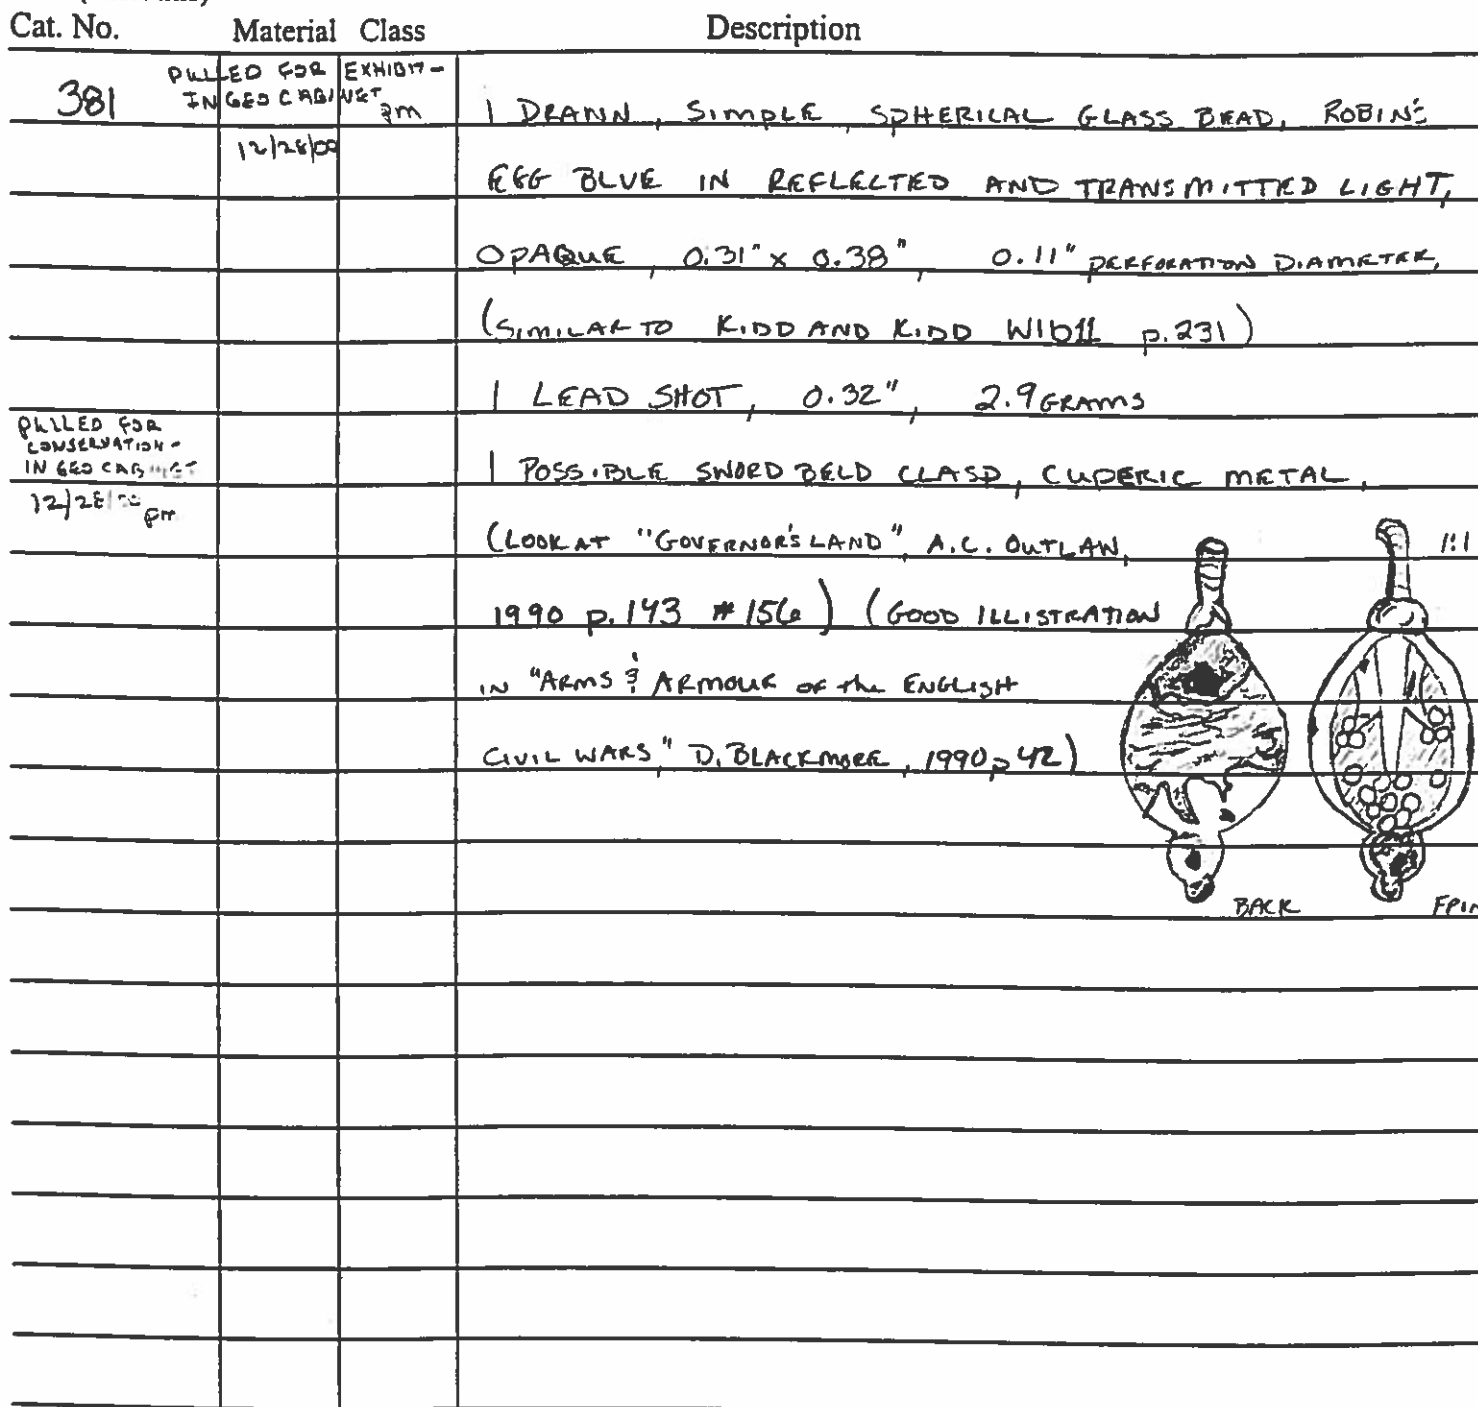 Cat. No. Material Class Description
PULLED FOR EXHIBIT -
381 IN GEO CABINET
12/28/00
1 DRAWN, SIMPLE, SPHERICAL GLASS BEAD, ROBIN'S
EGG BLUE IN REFLECTED AND TRANSMITTED LIGHT,
OPAQUE, 0.31" x 0.38", 0.11" PERFORATION DIAMETER,
(SIMILAR TO KIDD AND KIDD p.231)
1 LEAD SHOT, 0.32", 2.9 GRAMS
PULLED FOR
CONSERVATION -
IN GEO CABINET
12/28/00 pm
1 POSSIBLE SWORD BELD CLASP, CUPERIC METAL,
(LOOK AT "GOVERNOR'S LAND", A.C. OUTLAW, 1:1
1990 p.143 #156) (GOOD ILLISTRATION
IN "ARMS & ARMOUR OF the ENGLISH
CIVIL WARS," D. BLACKMORE, 1990 p 42)
BACK